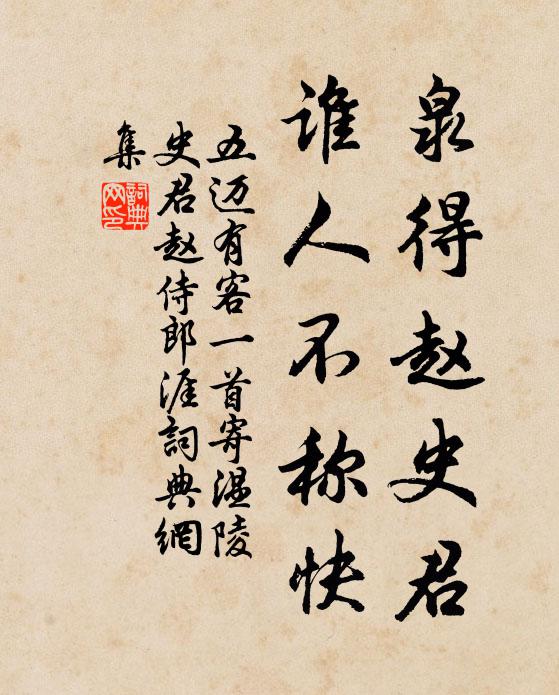 泉得赵史君
谁人不称快
五迈有客一首寄温陵
史君赵侍郎涯詞典網
集
詞典网印